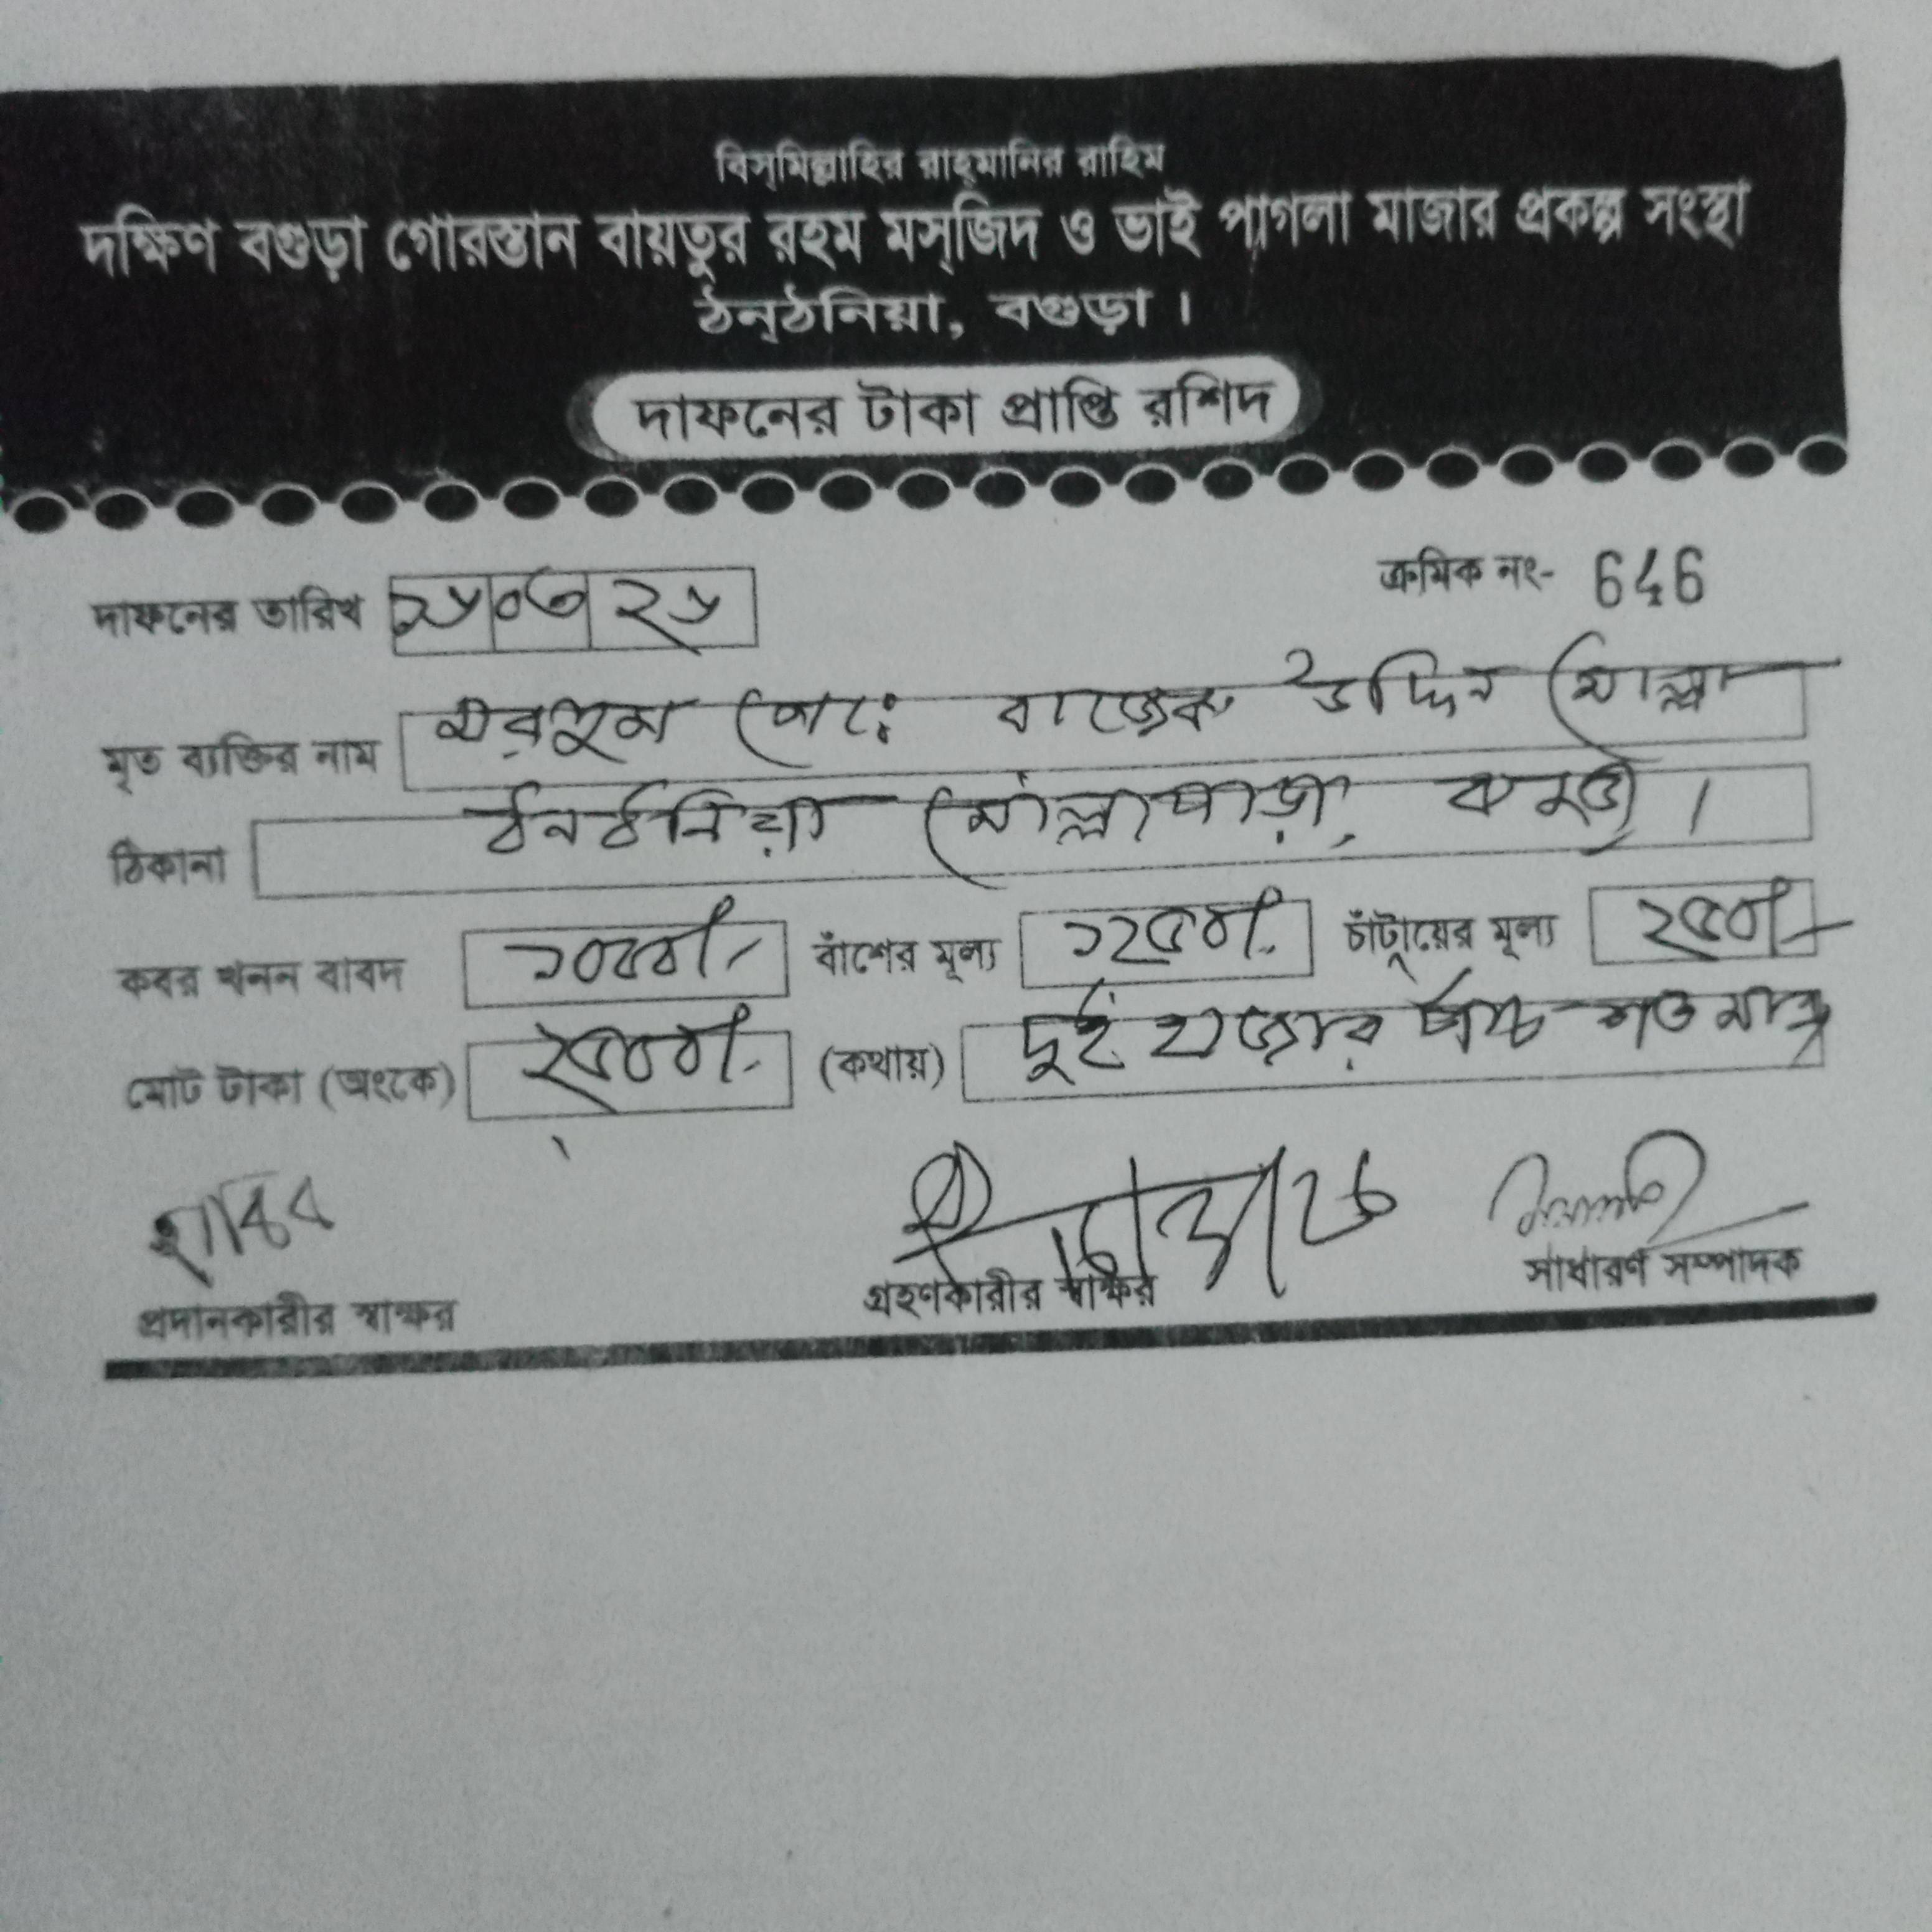 বিস্‌মিল্লাহির রাহ্‌মানির রাহিম
দক্ষিণ বগুড়া গোরস্তান বায়তুর রহম মস্‌জিদ ও ভাই পাগলা মাজার প্রকল্প সংস্থা
ঠন্‌ঠনিয়া, বগুড়া ।
দাফনের টাকা প্রাপ্তি রশিদ
ক্রমিক নং- 646
দাফনের তারিখ ২৮ ০৩ ২৫
মৃত ব্যক্তির নাম মরহুম মোঃ উদ্দিন মোল্লা
ঠিকানা ঠনঠনিয়া মোল্লাপাড়া, বগুড়া ।
কবর খনন বাবদ ১০০০/- বাঁশের মূল্য ১২৫০/- চাট্টায়ের মূল্য ২৫০/-
মোট টাকা (অংকে) ২৫০০/- (কথায়) দুই হাজার পাঁচ শত মাত্র
প্রদানকারীর স্বাক্ষর গ্রহণকারীর স্বাক্ষর সাধারণ সম্পাদক